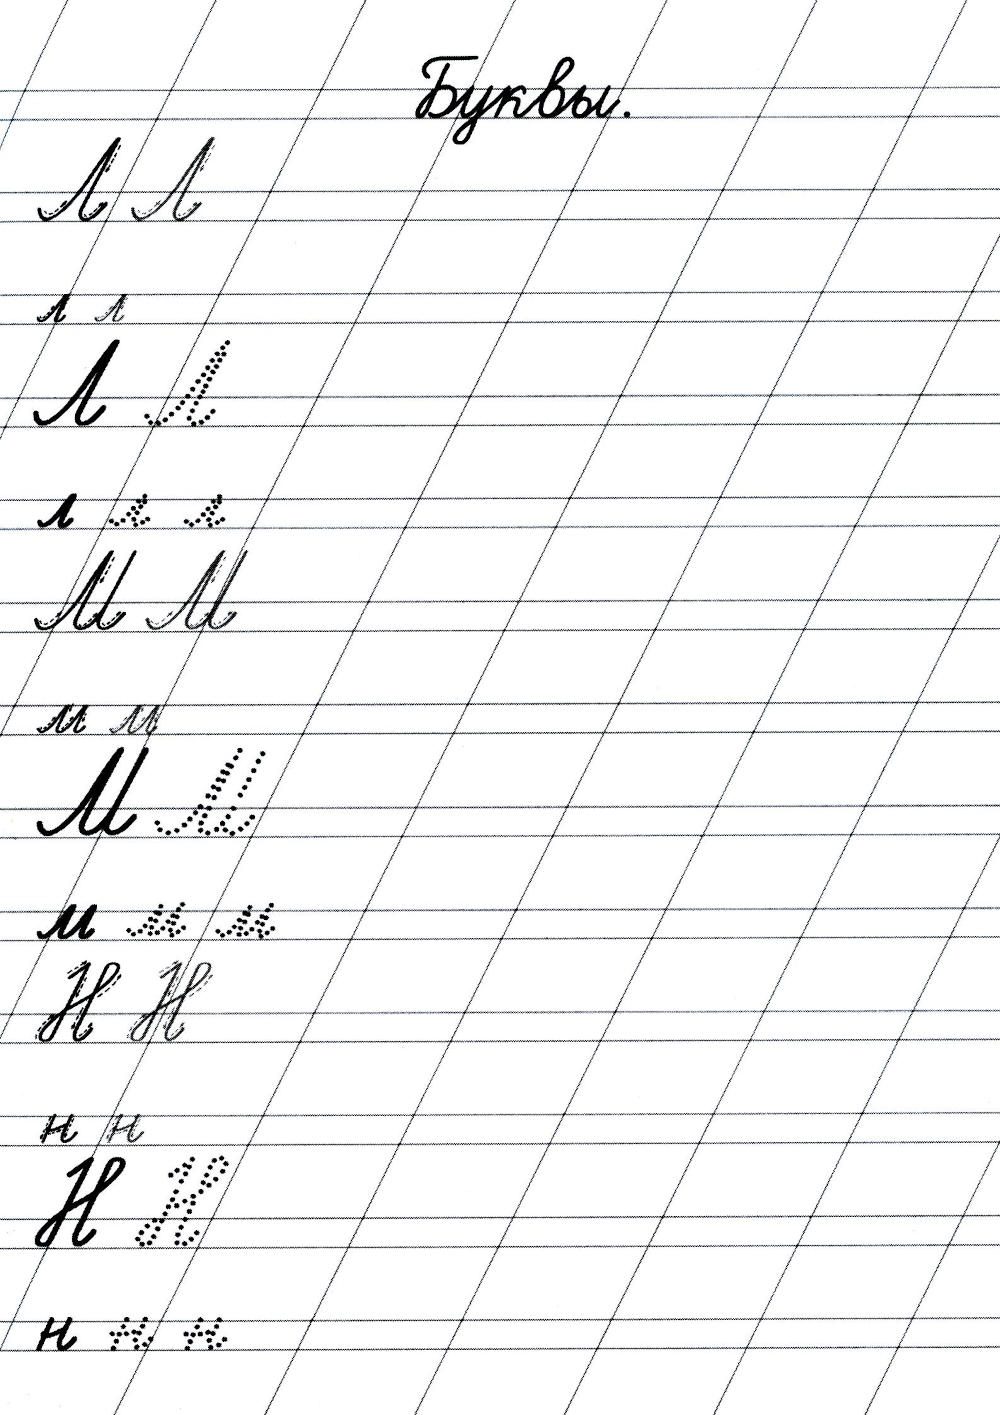 Буквы.
Л Л
л л
Л Л
л л л
М М
м м
М М
м м м
Н Н
н н
Н Н
н н н